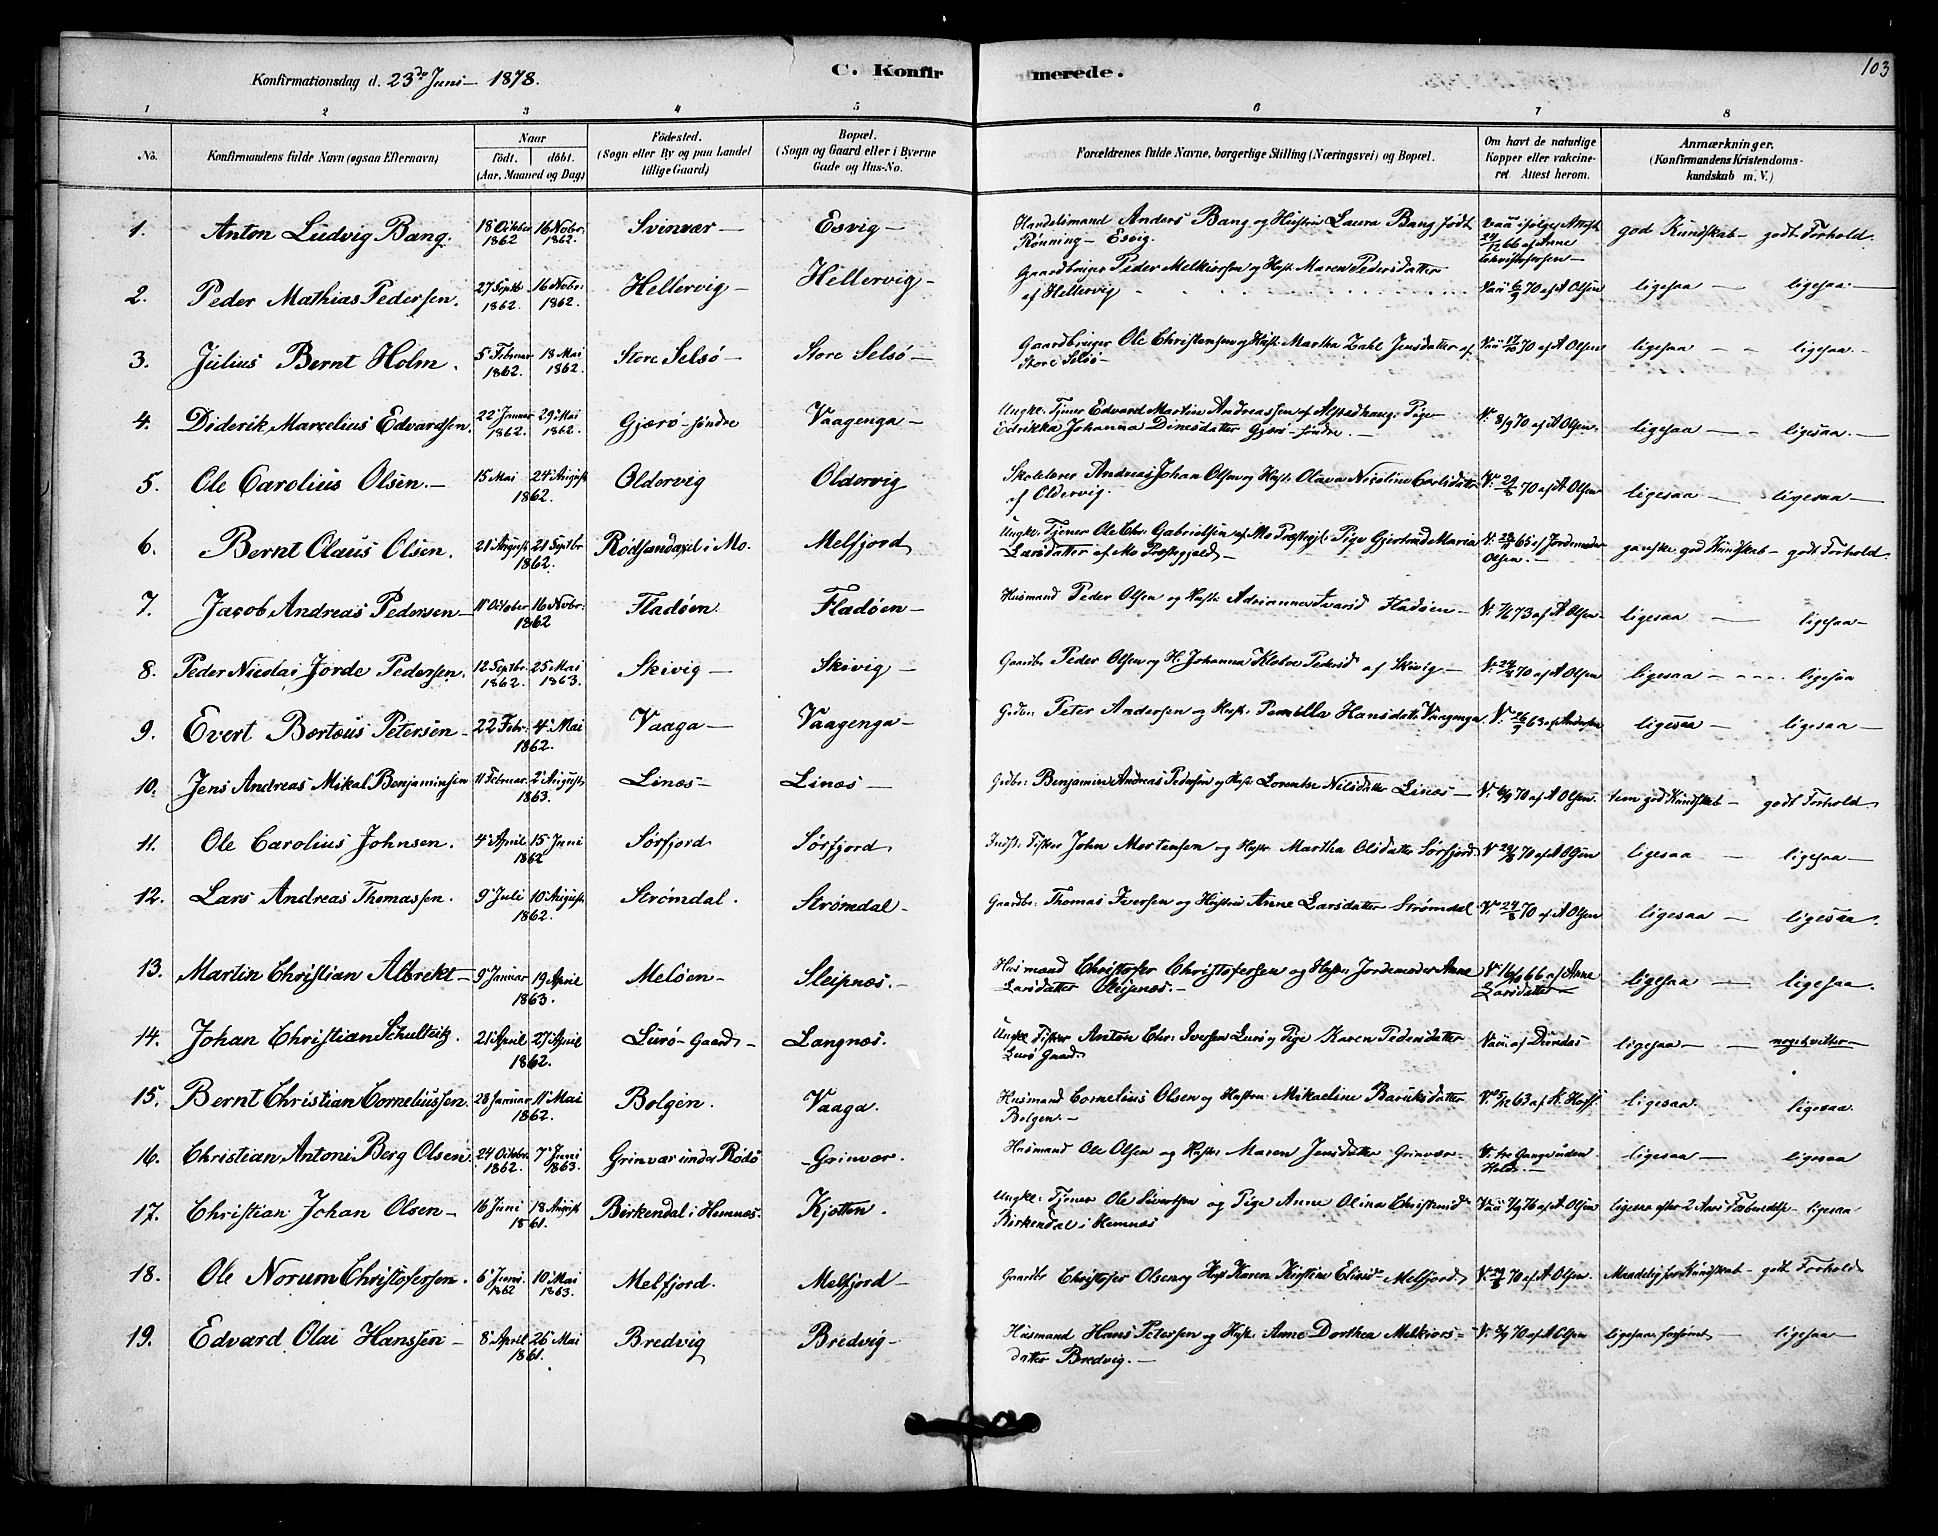 Konfirmationsdag d. 23de Juni 1878.
C. Konfirmerede.
103
1 2 3 4 5 6 7 8
No.
Konfirmandens fulde Navn (ogsaa Efternavn)
Naar
födt. döbt.
(Aar, Maaned og Dag)
Födested.
(Sogn eller By og paa Landet
tillige Gaard)
Bopæl.
(Sogn og Gaard eller i Byerne
Gade og Hus-No.
Forældrenes fulde Navne, borgerlige Stilling (Næringsvei) og Bopæl.
Om havt de naturlige
Kopper eller vakcine-
ret. Attest herom.
Anmærkninger.
(Konfirmandens Kristendoms-
kundskab m. V.)
1. Anton Ludvig Bang. 18 October 1862 16 Novbr. 1862. Svinvær – Esvig – Handelsmand Anders Bang og Hustru Laura Bang født
Rønning – Esvig. Vacc. ifølge Attest 24/12 66 af Anne Christofersen – god Kundskab – godt Forhold.
2. Peder Mathias Pedersen. 27 Septb 1862. 16 Novbr: 1862. Hellervig – Hellervig – Gaardbruger Peder Melkiorsen og Hust. Maren Pedersdatter
af Hellervig Vacc 6/9 70 af A Olsen ligesaa – ligesaa. –
3. Julius Bernt Holm. 5 Februar 1862. 18 Mai 1862. Store Selsø – Store Selsø – Gaardbruger Ole Christensen og Hust: Martha Zahl Jensdatter af
Store Selsø – 70 af A Olsen ligesaa – ligesaa. –
4. Diderik Marcelius Edvardsen. 22 Januar 1862. 29 Mai 1862. Gjærø – søndre Vaagenga – Ungk: Tjener Edvard Martin Andreassen af Alstadhaug: Pige
Edrikka Johanna Dinesdatter Gjærø – søndre. – V. 8/9 70 af A Olsen. ligesaa – ligesaa. –
5. Ole Carolius Olsen. – 15 Mai 24 August 1862. Oldervig Oldervig Skolelærer Andreas Johan Olsen og Hust: Olava Nicoline Carlsdatter
af Oldervig. V. 29/8 70 af A Olsen ligesaa – ligesaa –
6. Bernt Olaus Olsen. 21 August 21 Septbr 1862. Rødsandaxel i Mo. Melfjord Ungk. Tjener Ole Chr. Gabrielsen af Mo Præstegjl: Pige Gjertrud Maria
Larsdatter af Mo Præstegjeld – 65 af Jordemoder Olsen. – ganske god Kundskab – godt Forhold.
7. Jacob Andreas Pedersen – 11 October 16 Novbr: 1862 Fladøen. Fladøen – Husmand Peder Olsen og Hust: Adrianna Ivarsd Fladøen – 73 af A Olsen – ligesaa – ligesaa –
8. Peder Nicolai Jorde Pedersen. 12 Septbr. 1862. 25 Mai 1863. Skivig – Skivig – Gaardb: Peder Olsen og H. Johanna Pedersd af Skivig – 70 af A Olsen ligesaa – ligesaa
9. Evert Bertæus Petersen – 22 Febr: 4 Mai 1862. Vaaga – Vaagenga – Grdbr: Peter Andersen og Hust: Pernilla Hansdatt: Vaagenga 63 af Andersen ligesaa – ligesaa –
10. Jens Andreas Mikal Benjaminsen 11 Februar. 2 August 1863. Linæs – Linæs – Grdbr: Benjamin Andreas Pedersen og Hust: Lorentse Nilsdatter Linæs – V. 6/9 70 af A Olsen. tem. god Kundskab – godt Forhold
11. Ole Carolius Johnsen. 4 April 15 Juni 1862 Sørfjord Sørfjord Indst: Fisker John Mortensen og Hustr Martha Olsdatter Sørfjord V. 29/8 70 af A Olsen ligesaa – ligesaa –
12. Lars Andreas Thomassen. 9 Juli 10 August 1862. Strømdal. Strømdal – Gaardbr: Thomas Iversen og Hustru Anne Larsdatter Strømdal V. 24/8 70 af A Olsen ligesaa – ligesaa.
13. Martin Christian Albrekt – 9 Januar 19 April 1863. Meløen – Sleipnæs. – Husmand Christofer Christofersen og Hustr: Jordemoder Anne
Larsdatter Sleipnæs. – V. 16/9 66 af Anne Larsdatter – ligesaa – ligesaa.
14. Johan Christian Schultvik. 21 April 27 April 1862. Lurø – Gaard – Langnæs. Ungk Fisker Anton Chr: Iversen Lurø og Pige Karen Pedersdatter
Lurø Gaard Vacc. af Dundas ligesaa – noget vilter –
15. Bernt Christian Corneliussen. 28 Januar 11 Mai 1862. Bolgen. Vaaga. Husmand Cornelius Olsen og Hustru: Mikaeline Baruksdatter
Bolgen. 63 af K. Horst ligesaa. ligesaa.
16. Christian Antoni Berg Olsen 24 Octobr. 1862. 7 Juni 1863. Grinvær under Rödö Grinvær. Husmand Ole Olsen og Hustr: Maren Jensdatter Grinvær – V. tre Gange uden Held. – ligesaa – ligesaa
17. Christian Johan Olsen – 16 Juni 18 August 1861. Birkendal i Hemnæs. Kjøtten. Ungk: Tjener Ole Sivertsen og Pige Anne Olina Christensd
Birkendal i Hemnæs Vacc 7/9 76 af A Olsen ligesaa efter 2 Aars Forberedelse – ligesaa
18. Ole Norum Christofersen. 6 Juni 1862 10 Mai 1863. Melfjord. Melfjord – Gaardbr Christofer Olsen og Hust Karen Kirstine Eliasd – Melfjord V. 29/8 70 af A Olsen. Maadelig for Kundskab – godt Forhold
19. Edvard Olai Hanssen – 8 April 26 Mai 1861. Bredvig Bredvig – Husmand Hans Petersen og Hust: Anne Dorthea Melkiors –
datter Bredvig. – 70 af A Olsen ligesaa – ligesaa –